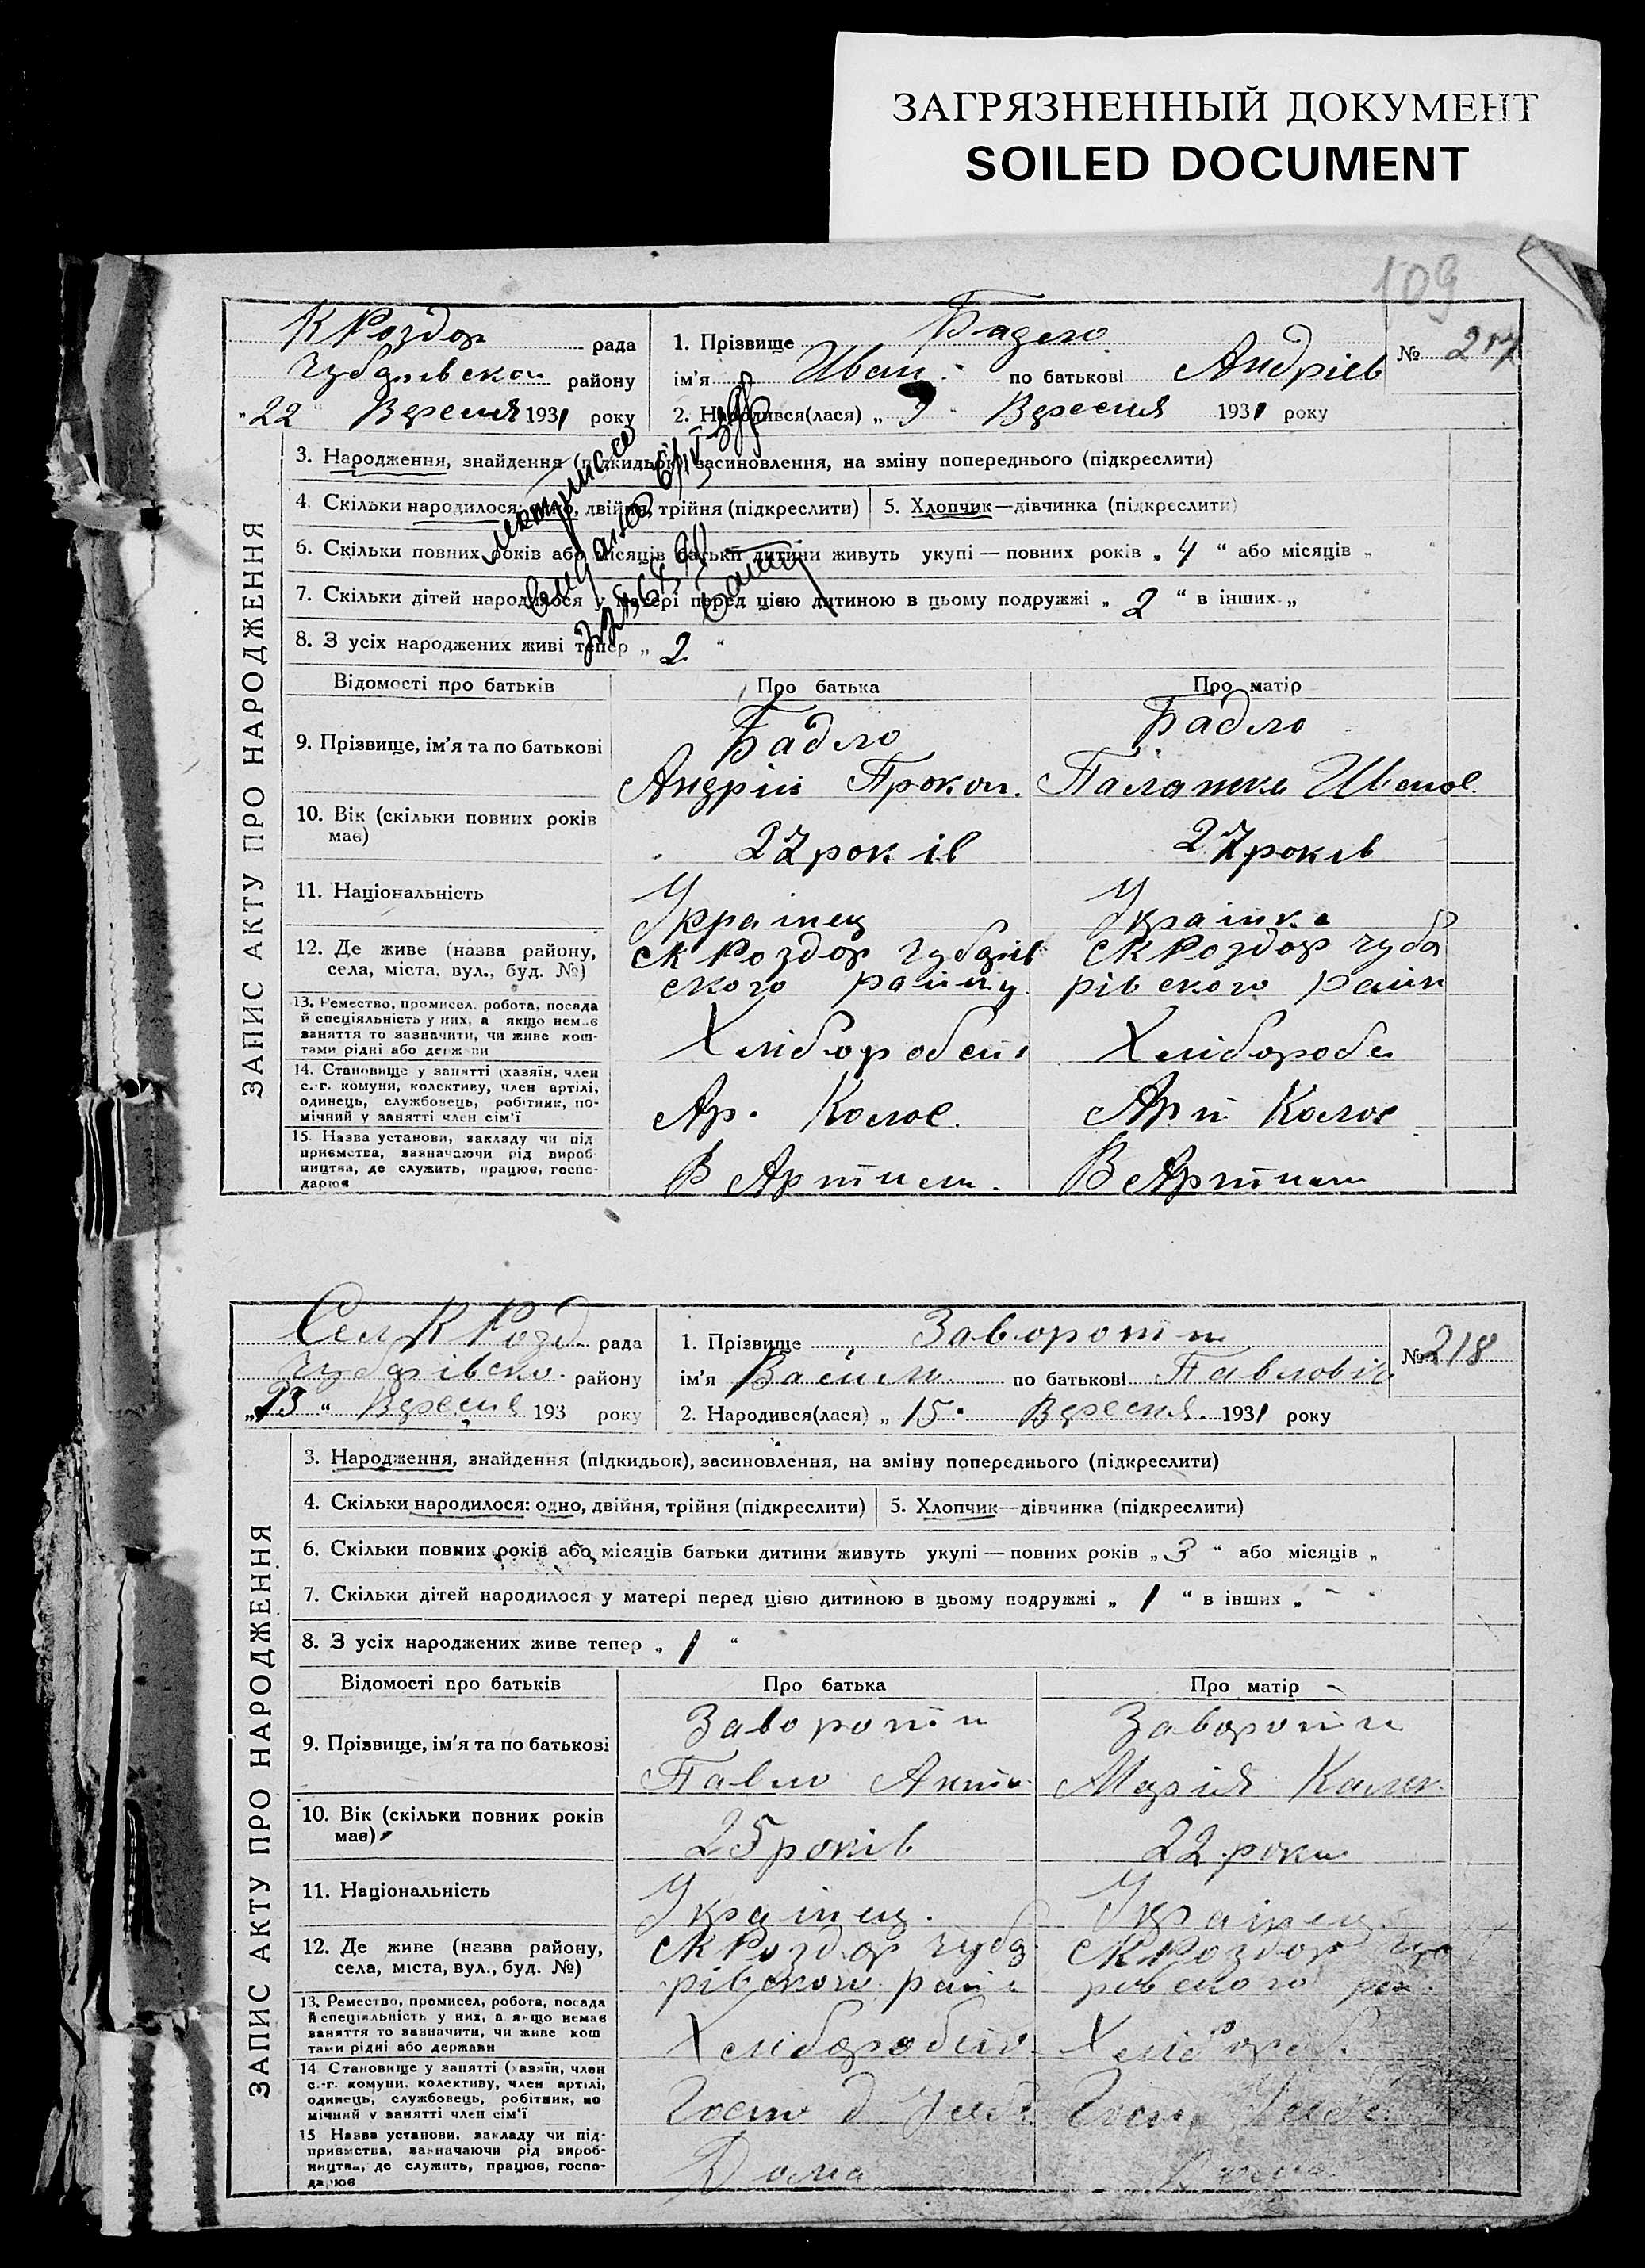 ЗАГРЯЗНЕННЫЙ ДОКУМЕНТ
SOILED DOCUMENT
109
ЗАПИС АКТУ ПРО НАРОДЖЕННЯ
К Роздор рада
Чубарівског району
„22“ Вересня 1931 року
1. Прізвище Бадло
ім'я Иван по батькові Андріев
№ 217
2. Народився(лася) „9“ Вересня 1931 року
3. Народження, знайдення (підкидьок), засиновлення, на зміну попереднього (підкреслити)
4. Скільки народилося: одно, двійня, трійня (підкреслити) 5. Хлопчик—дівчинка (підкреслити)
6. Скільки повних років або місяців батьки дитини живуть укупі — повних років „4“ або місяців „ “
7. Скільки дітей народилося у матері перед цією дитиною в цьому подружжі „2“ в інших „ “
8. З усіх народжених живі тепер „2“
Відомості про батьків Про батька Про матір
9. Прізвище, ім'я та по батькові
Бадло
Андрій Прокоп.
Бадло
Палажка Иванов.
10. Вік (скільки повних років має)
27 років
27 років
11. Національність
Украінец
Украінка
12. Де живе (назва району, села, міста, вул., буд. №)
с К Роздор Чубарів
ского району
с К Роздор Чуба
рівского райн
13. Ремество, промисел, робота, посада
й спеціяльність у них, а якщо немає
заняття то зазначити, чи живе кош-
тами рідні або держави
Хлібороб
Хлібороб
14. Становище у занятті (хазяїн, член
с.-г. комуни, колективу, член артілі,
одинець, службовець, робітник, по-
мічний у занятті член сім'ї
Ар. Колос.
Арт Колос
15. Назва установи, закладу чи під
приємства, зазначаючи рід вироб
ництва, де служить, працює, госпо-
дарює
В Артили
В Артили
ЗАПИС АКТУ ПРО НАРОДЖЕННЯ
Сел К Розд рада
Чубарівско району
„23“ Вересня 193 року
1. Прізвище Заворотни
ім'я Василь по батькові Павловіч
№ 218
2. Народився(лася) „15“ Вересня 1931 року
3. Народження, знайдення (підкидьок), засиновлення, на зміну попереднього (підкреслити)
4. Скільки народилося: одно, двійня, трійня (підкреслити) 5. Хлопчик—дівчинка (підкреслити)
6. Скільки повних років або місяців батьки дитини живуть укупі — повних років „3“ або місяців „ “
7. Скільки дітей народилося у матері перед цією дитиною в цьому подружжі „1“ в інших „ –
8. З усіх народжених живе тепер „1“
Відомості про батьків Про батька Про матір
9. Прізвище, ім'я та по батькові
Заворотни
Павло
Заворотни
Марія
10. Вік (скільки повних років має)
25 років
22 роки
11. Національність
Украінец.
Украінец
12. Де живе (назва району, села, міста, вул., буд. №)
с К Роздор Чуба
рівского райн
с К Роздор Чуба
ровского рай
13. Ремество, промисел, робота, посада
й спеціяльність у них, а якщо немає
заняття то зазначити, чи живе кош
тами рідні або держави
Хлібороб
Хлібороб
14. Становище у занятті (хазяїн, член
с.-г. комуни, колективу, член артілі,
одинець, службовець, робітник, по
мічний у занятті член сім'ї
15 Назва установи, закладу чи під-
приємства, зазначаючи рід вироб-
ництва, де служить, працює, госпо-
дарює
Дома
Дома